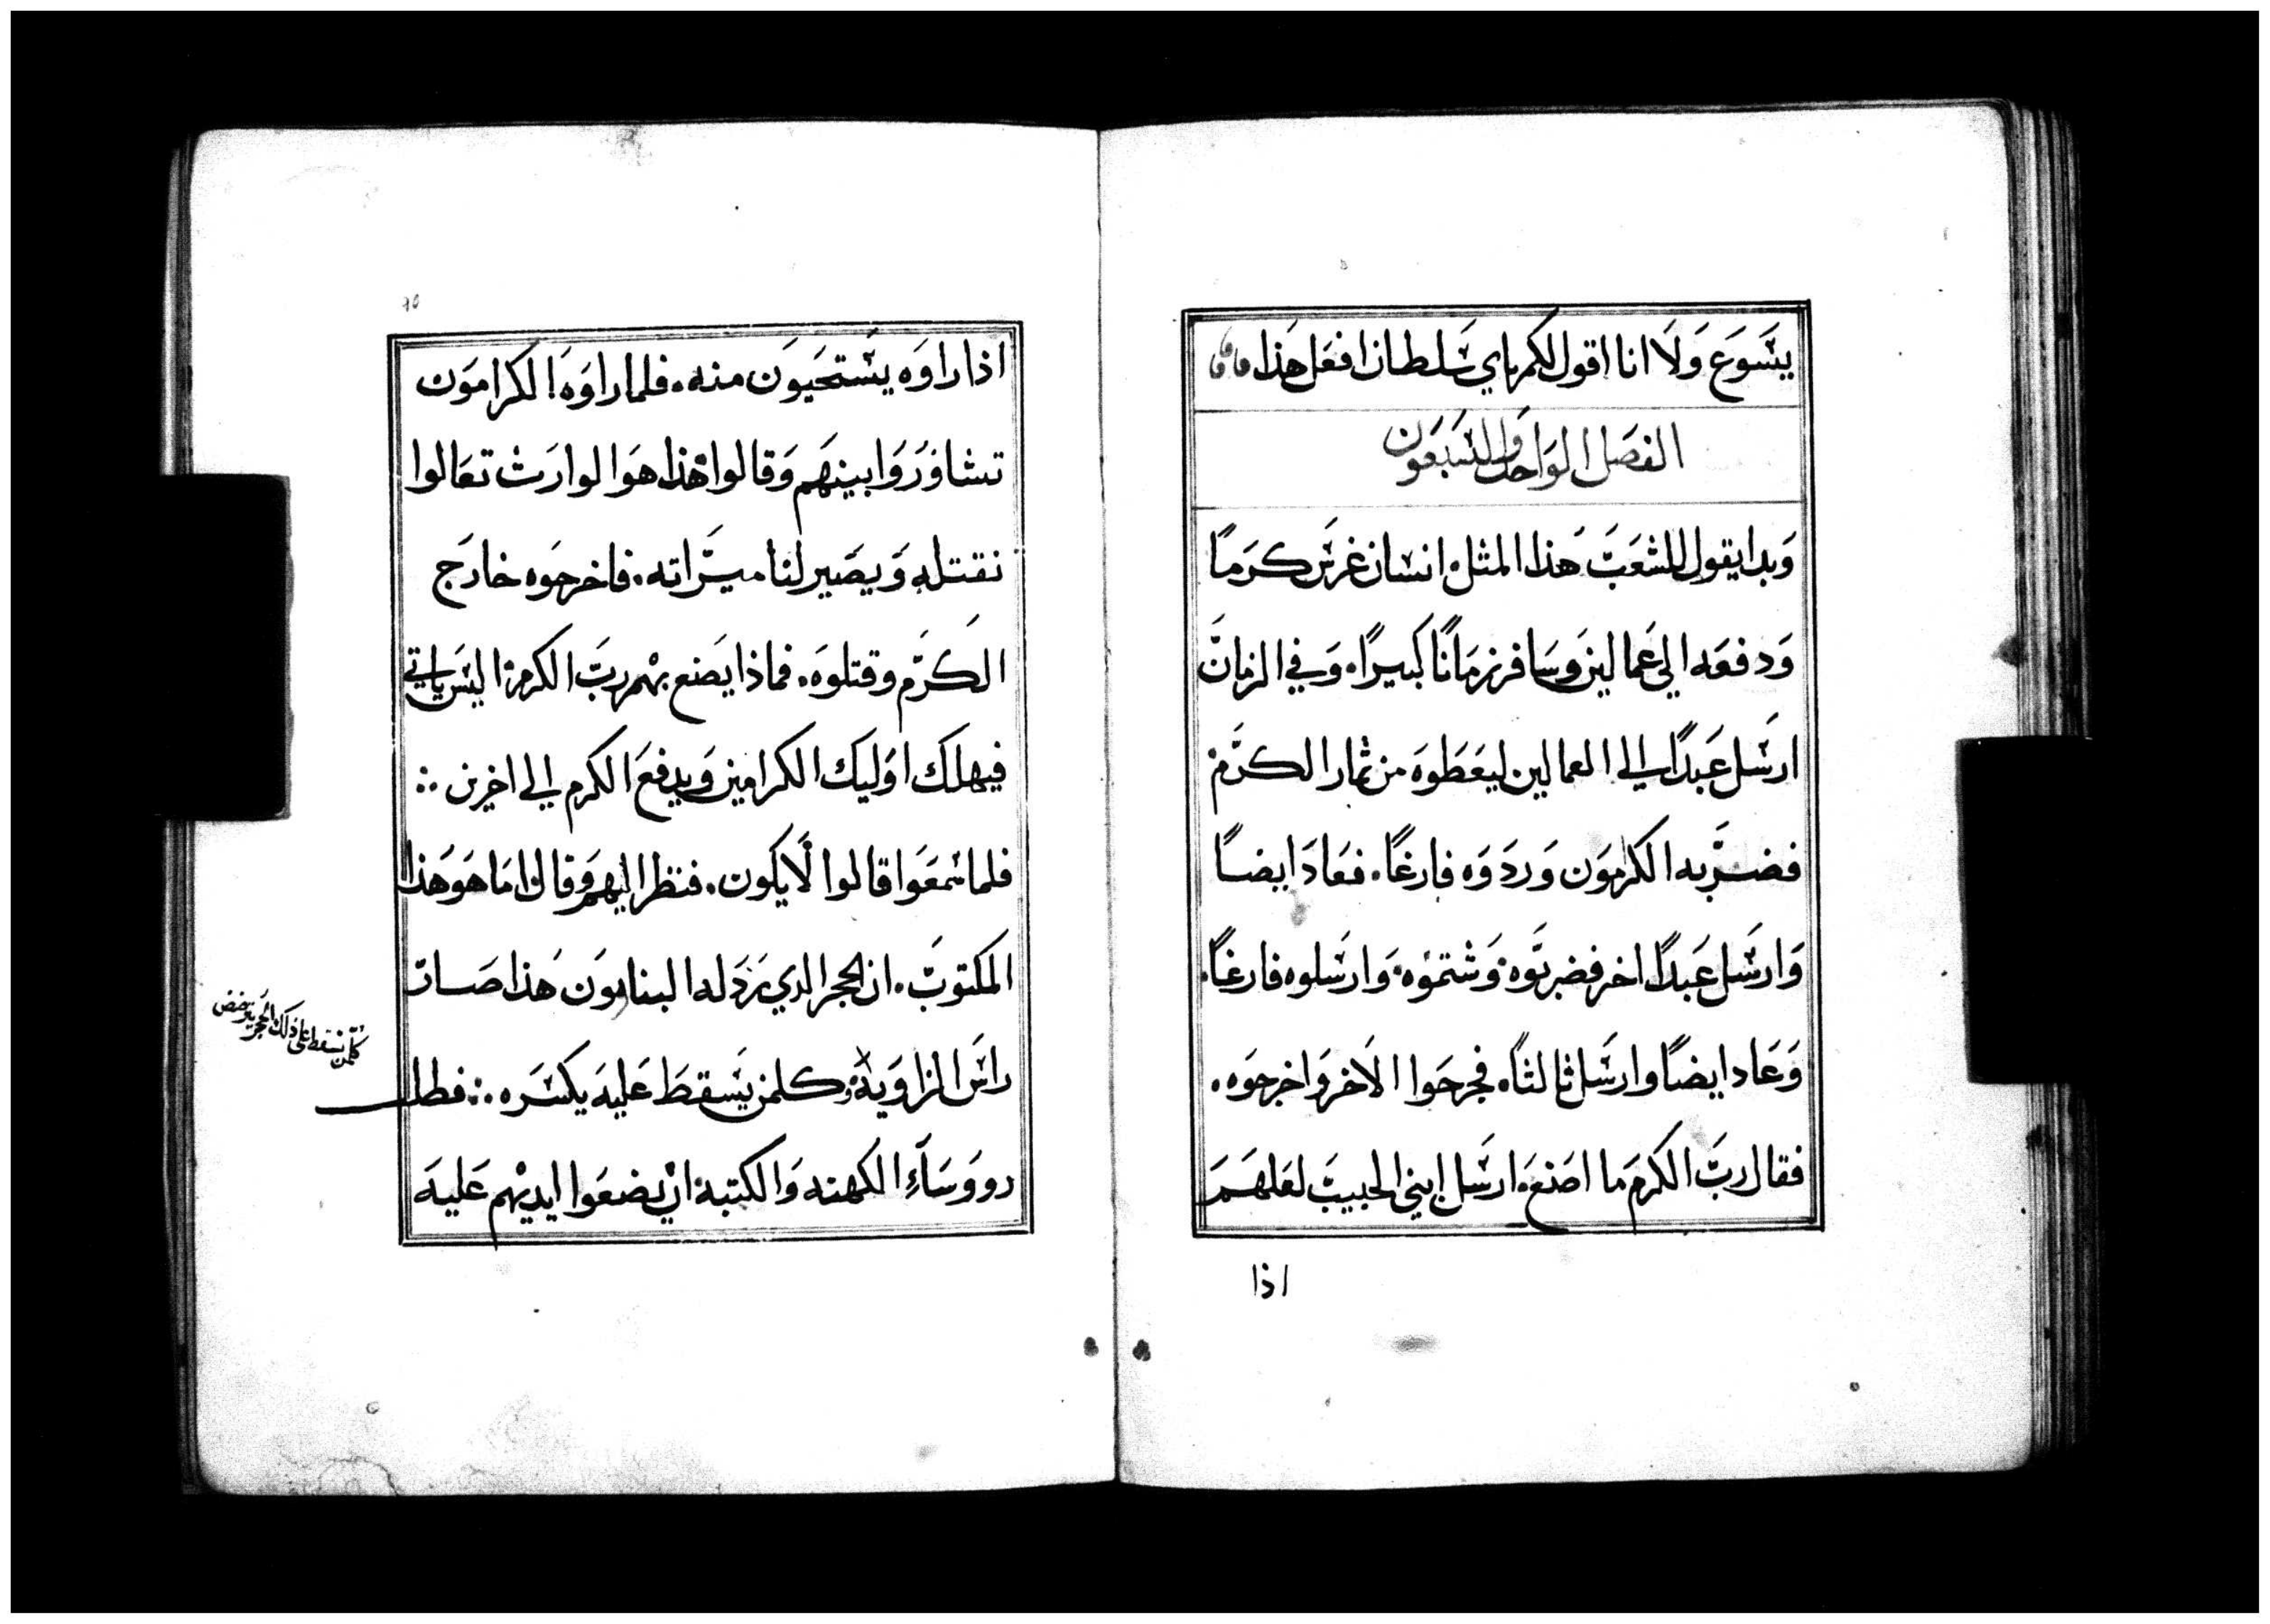 يسوع ولا انا اقول لكم باي سلطان افعل هذا
الفصل الواحد والسبعون
وبدا يقول للشعب هذا المثل انسان غرس كرمًا
ودفعه الي عمالين وسافر زمانًا كبيرًا. وفي الزمان
ارسل عبدًا الي العمالين ليعطوه من ثمار الكرم
فضربه الكرامون وردوه فارغًا. فعاد ايضًا
وارسل عبدًا اخر فضربوه وشتموه وارسلوه فارغًا.
وعاد ايضًا وارسل ثالثًا. فجرحوا الاخر واخرجوه.
فقال رب الكرم ما اصنع ارسل ابني الحبيب لعلهم
اذا
اذا راوه يستحيون منه. فلما راوه الكرامون
تشاوروا بينهم وقالوا هذا هو الوارث تعالوا
نقتله ويصير لنا ميراثه. فاخرجوه خارج
الكرم وقتلوه. فماذا يصنع بهم رب الكرم اليس ياتي
فيهلك اوليك الكرامين ويدفع الكرم الي اخرين ::
فلما سمعوا قالوا لا يكون. فنظر اليهم وقال اما هو هذا
المكتوب. ان الحجر الدي رذله البناوون هذا صار
راس الزاوية وكلمن يسقط عليه يكسره :: فطلب
رووساء الكهنه والكتبة ان يضعوا ايديهم عليه
كلمن سقط علي ذلك الحجر يترضض